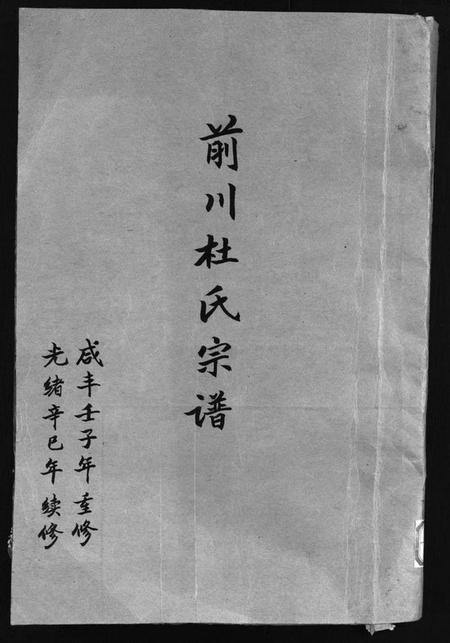 前川杜氏宗谱
咸丰壬子年重修
光绪辛巳年续修